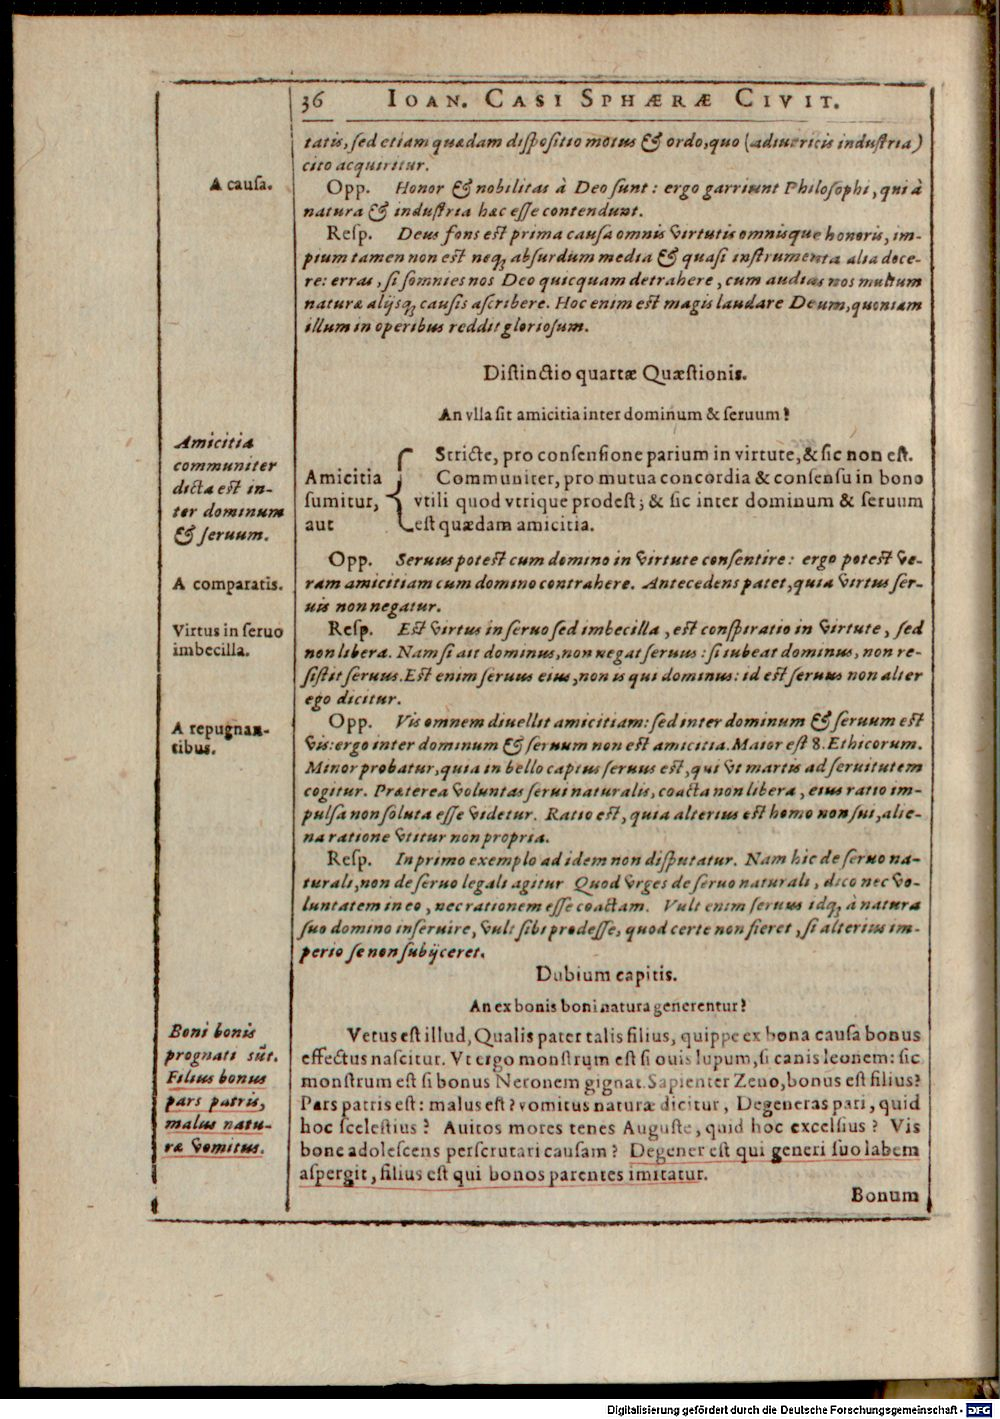 36 IOAN. CASI SPHÆRÆ CIVIT.
tatis, sed etiam quædam dispositio motus & ordo, quo (adiutricis industria)
cito acquiritur.
A causa.
Opp. Honor & nobilitas à Deo sunt: ergo garriunt Philosophi, qui à
natura & industria hæc esse contendunt.
Resp. Deus fons est prima causa omnis virtutis omnisque honoris, im-
pium tamen non est neq; absurdum media & quasi instrumenta alia doce-
re: erras, si somnies nos Deo quicquam detrahere, cum audias nos multum
naturæ alijsq; causis ascribere. Hoc enim est magis laudare Deum, quoniam
illum in operibus reddit gloriosum.
Distinctio quartæ Quæstionis.
An vlla sit amicitia inter dominum & seruum?
Amicitia
communiter
dicta est in-
ter dominum
& seruum.
Amicitia
sumitur,
aut
Stricte, pro consensione parium in virtute, & sic non est.
Communiter, pro mutua concordia & consensu in bono
vtili quod vtrique prodest; & sic inter dominum & seruum
est quædam amicitia.
A comparatis.
Opp. Seruus potest cum domino in virtute consentire: ergo potest ve-
ram amicitiam cum domino contrahere. Antecedens patet, quia virtus ser-
uis non negatur.
Virtus in seruo
imbecilla.
Resp. Est virtus in seruo sed imbecilla, est conspiratio in virtute, sed
non libera. Nam si ait dominus, non negat seruus: si iubeat dominus, non re-
sistit seruus. Est enim seruus eius, non is qui dominus: id est seruus non alter
ego dicitur.
A repugnan-
tibus.
Opp. Vis omnem diuellit amicitiam: sed inter dominum & seruum est
vis: ergo inter dominum & seruum non est amicitia. Maior est 8. Ethicorum.
Minor probatur, quia in bello captus seruus est, qui vi martis ad seruitutem
cogitur. Præterea voluntas serui naturalis, coacta non libera, eius ratio im-
pulsa non soluta esse videtur. Ratio est, quia alterius est homo non sui, alie-
na ratione vtitur non propria.
Resp. In primo exemplo ad idem non disputatur. Nam hic de seruo na-
turali, non de seruo legali agitur Quod vrges de seruo naturali, dico nec vo-
luntatem in eo, nec rationem esse coactam. Vult enim seruus idq; à natura
suo domino inseruire, vult sibi prodesse, quod certe non fieret, si alterius im-
perio se non subijceret.
Dubium capitis.
An ex bonis boni natura generentur?
Boni bonis
prognati sūt.
Filius bonus
pars patris,
malus natu-
ræ vomitus.
Vetus est illud, Qualis pater talis filius, quippe ex bona causa bonus
effectus nascitur. Vt ergo monstrum est si ouis lupum, si canis leonem: sic
monstrum est si bonus Neronem gignat. Sapienter Zeno, bonus est filius?
Pars patris est: malus est? vomitus naturæ dicitur, Degeneras pari, quid
hoc scelestius? Auitos mores tenes Auguste, quid hoc excelsius? Vis
bone adolescens perscrutari causam? Degener est qui generi suo labem
aspergit, filius est qui bonos parentes imitatur.
Bonum
Digitalisierung gefördert durch die Deutsche Forschungsgemeinschaft - DFG